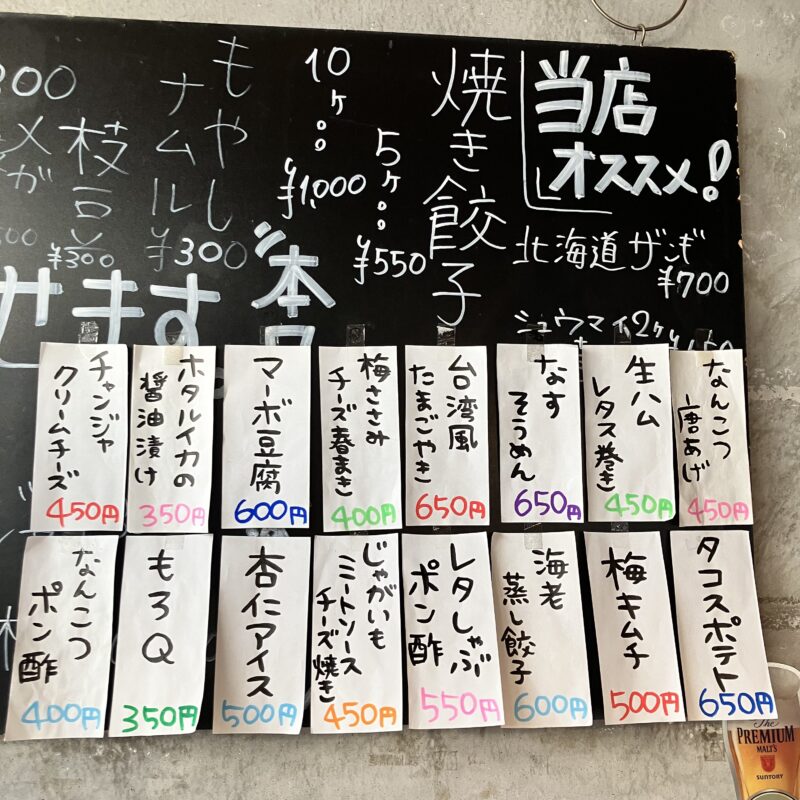 当店
オススメ!
北海道ザンギ
¥700
シュウマイ2ケ
焼き餃子
5ケ。。
¥550
10ケ。。
¥1,000
もやし
ナムル
¥300
枝豆
¥300
メガ
本日
せます。
なんこつ
唐あげ
450円
生ハム
レタス巻き
450円
なす
そうめん
650円
台湾風
たまごやき
650円
梅ささみ
チーズ春まき
400円
マーボ豆腐
600円
ホタルイカの
醤油漬け
350円
チャンジャ
クリームチーズ
450円
タコスポテト
650円
梅キムチ
500円
海老
蒸し餃子
600円
レタしゃぶ
ポン酢
550円
じゃがいも
ミートソース
チーズ焼き
450円
杏仁アイス
500円
もろQ
350円
なんこつ
ポン酢
400円
The
PREMIUM
MALT'S
SUNTORY